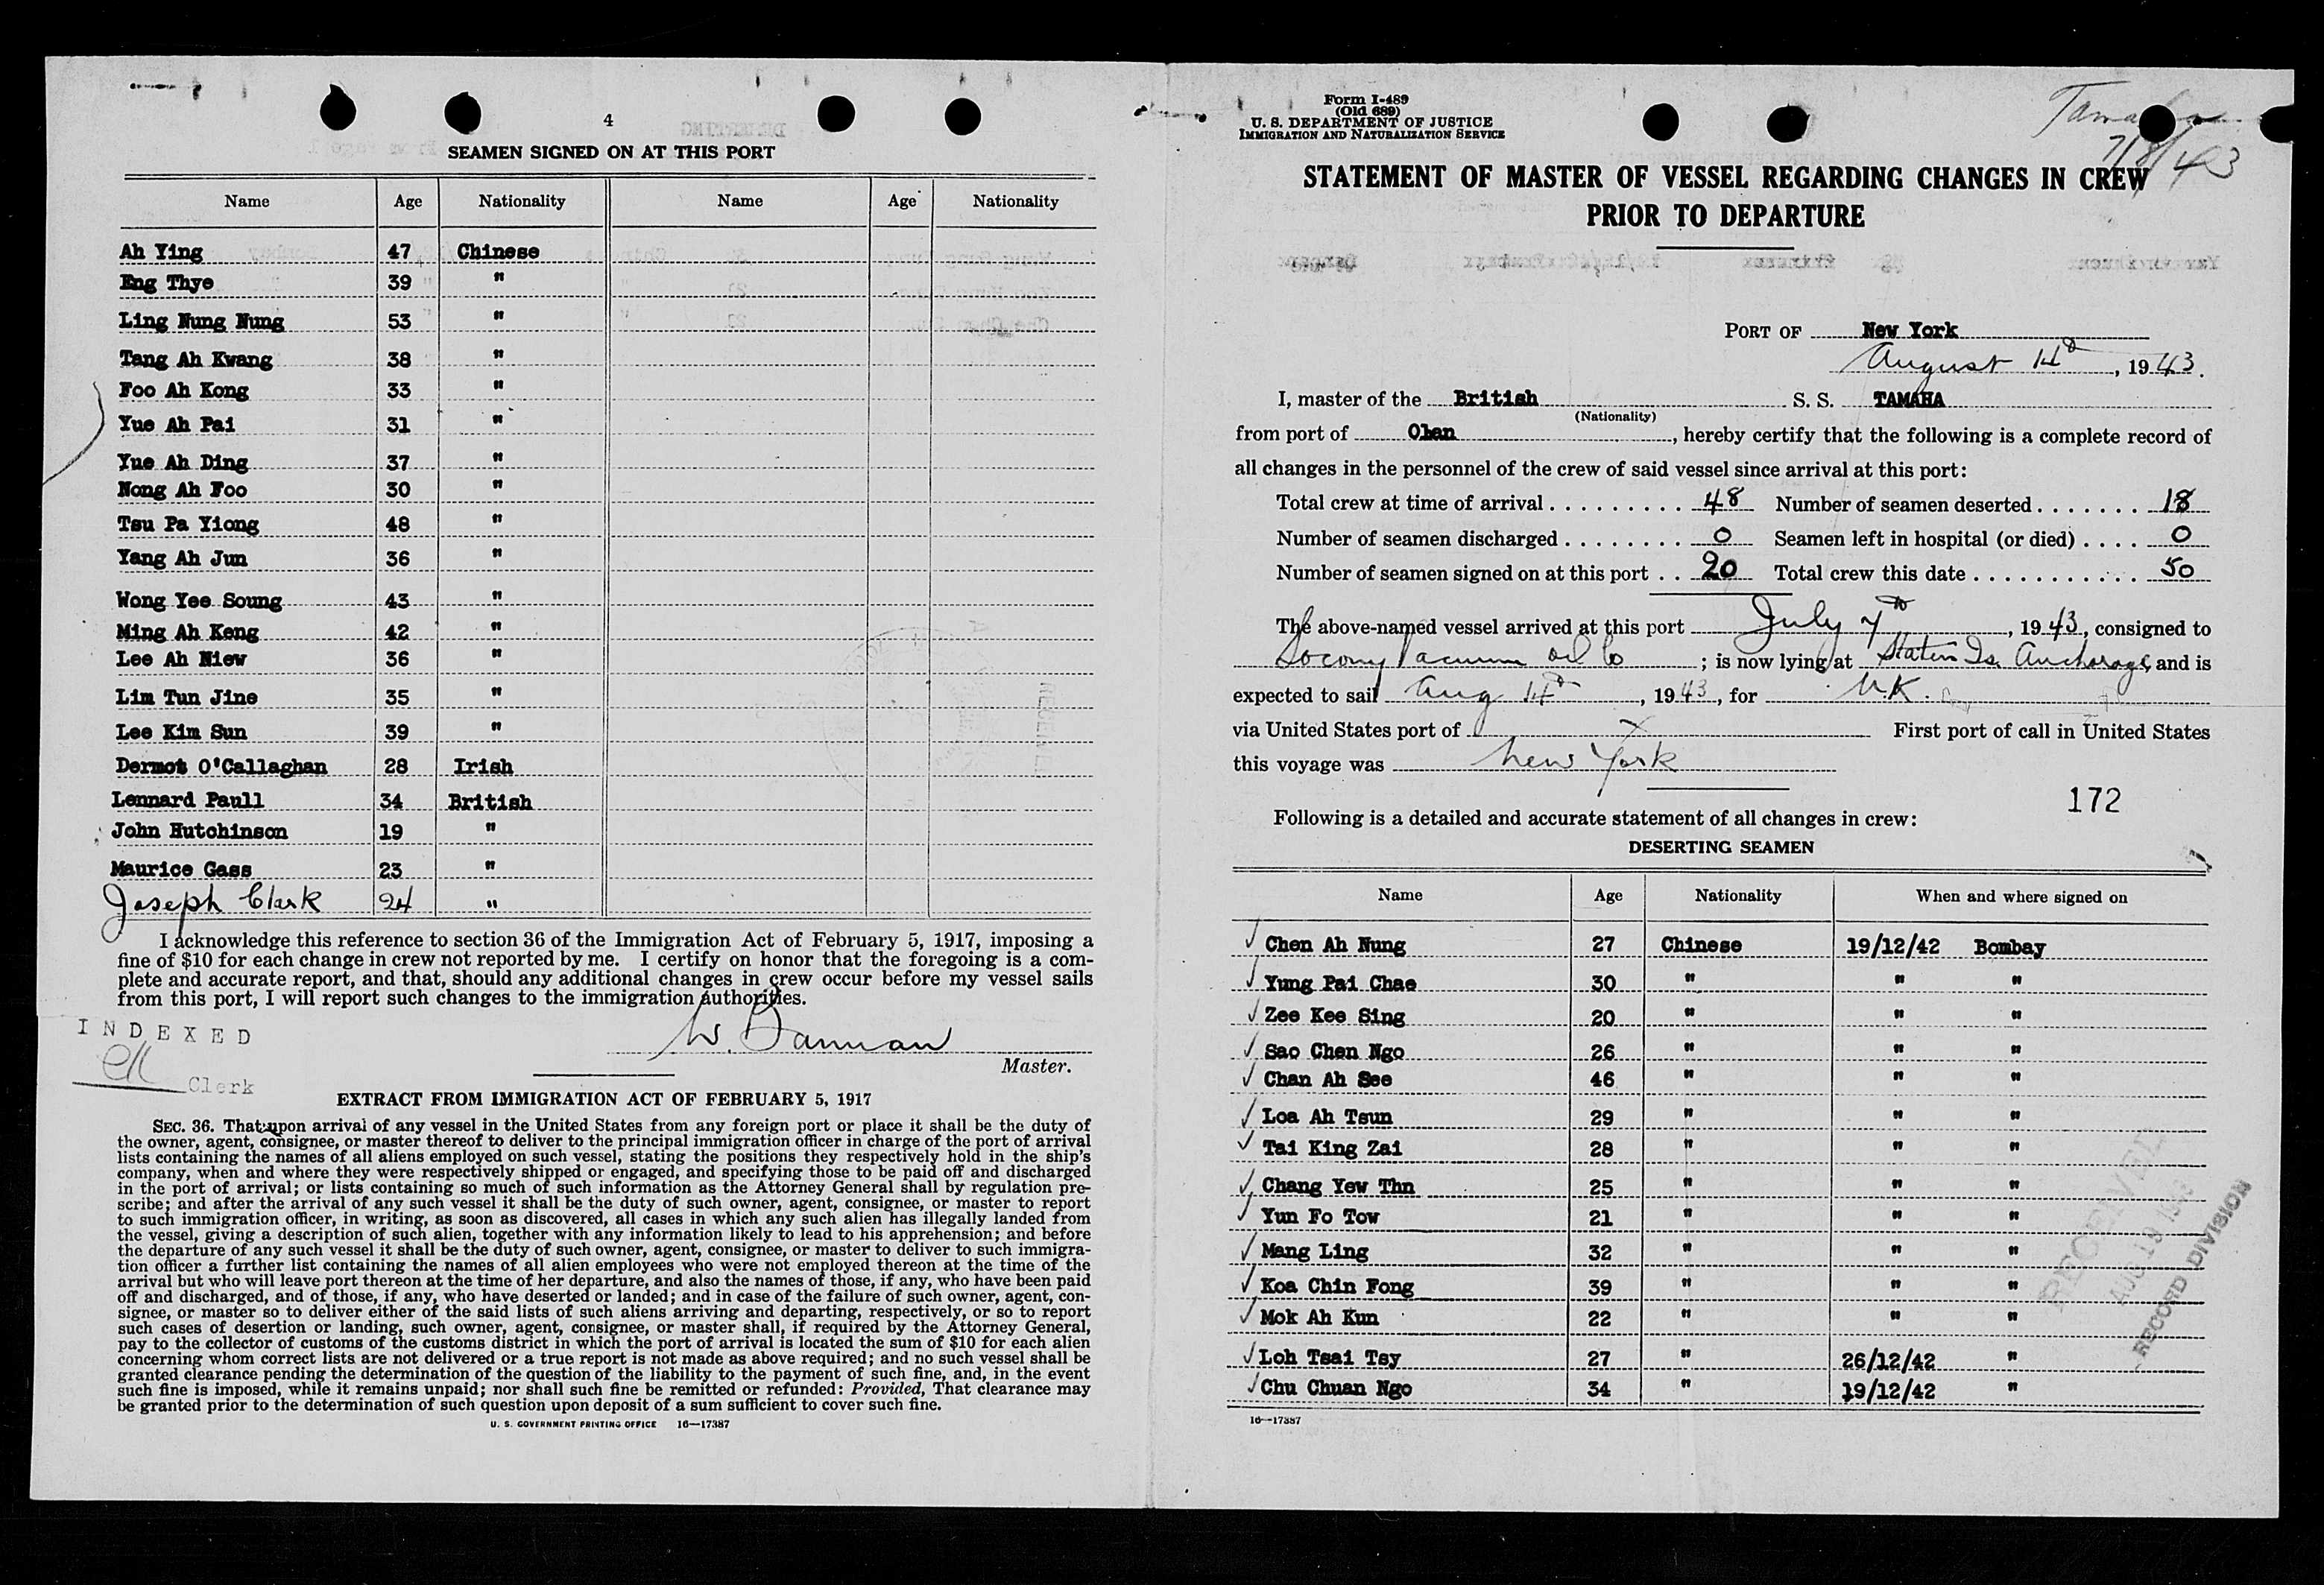 4
SEAMEN SIGNED ON AT THIS PORT
Name Age Nationality Name Age Nationality
Ah Ying 47 Chinese
Eng Thye 39 "
Ling Nung Nung 53 "
Tang Ah Kwang 38 "
Foo Ah Kong 33 "
Yue Ah Pai 31 "
Yue Ah Ding 37 "
Nong Ah Foo 30 "
Tsu Pa Yiong 48 "
Yang Ah Jun 36 "
Wong Yee Soung 43 "
Ming Ah Keng 42 "
Lee Ah Niew 36 "
Lim Tun Jine 35 "
Lee Kim Sun 39 "
Dermot O'Callaghan 28 Irish
Lennard Paull 34 British
John Hutchinson 19 "
Maurice Gass 23 "
Joseph Clark 24 "
I acknowledge this reference to section 36 of the Immigration Act of February 5, 1917, imposing a
fine of $10 for each change in crew not reported by me. I certify on honor that the foregoing is a com-
plete and accurate report, and that, should any additional changes in crew occur before my vessel sails
from this port, I will report such changes to the immigration authorities.
INDEXED
Clerk
W.
Master.
EXTRACT FROM IMMIGRATION ACT OF FEBRUARY 5, 1917
SEC. 36. That upon arrival of any vessel in the United States from any foreign port or place it shall be the duty of
the owner, agent, consignee, or master thereof to deliver to the principal immigration officer in charge of the port of arrival
lists containing the names of all aliens employed on such vessel, stating the positions they respectively hold in the ship's
company, when and where they were respectively shipped or engaged, and specifying those to be paid off and discharged
in the port of arrival; or lists containing so much of such information as the Attorney General shall by regulation pre-
scribe; and after the arrival of any such vessel it shall be the duty of such owner, agent, consignee, or master to report
to such immigration officer, in writing, as soon as discovered, all cases in which any such alien has illegally landed from
the vessel, giving a description of such alien, together with any information likely to lead to his apprehension; and before
the departure of any such vessel it shall be the duty of such owner, agent, consignee, or master to deliver to such immigra-
tion officer a further list containing the names of all alien employees who were not employed thereon at the time of the
arrival but who will leave port thereon at the time of her departure, and also the names of those, if any, who have been paid
off and discharged, and of those, if any, who have deserted or landed; and in case of the failure of such owner, agent, con-
signee, or master so to deliver either of the said lists of such aliens arriving and departing, respectively, or so to report
such cases of desertion or landing, such owner, agent, consignee, or master shall, if required by the Attorney General,
pay to the collector of customs of the customs district in which the port of arrival is located the sum of $10 for each alien
concerning whom correct lists are not delivered or a true report is not made as above required; and no such vessel shall be
granted clearance pending the determination of the question of the liability to the payment of such fine, and, in the event
such fine is imposed, while it remains unpaid; nor shall such fine be remitted or refunded: Provided, That clearance may
be granted prior to the determination of such question upon deposit of a sum sufficient to cover such fine.
U. S. GOVERNMENT PRINTING OFFICE 16—17387
Form I-489
(Old 689)
U. S. DEPARTMENT OF JUSTICE
IMMIGRATION AND NATURALIZATION SERVICE
7/8/43
STATEMENT OF MASTER OF VESSEL REGARDING CHANGES IN CREW
PRIOR TO DEPARTURE
PORT OF New York
August 14th, 1943.
I, master of the British S. S. TAMAHA
(Nationality)
from port of Oban, hereby certify that the following is a complete record of
all changes in the personnel of the crew of said vessel since arrival at this port:
Total crew at time of arrival 48 Number of seamen deserted 18
Number of seamen discharged 0 Seamen left in hospital (or died) 0
Number of seamen signed on at this port 20 Total crew this date 50
The above-named vessel arrived at this port July 7th, 1943, consigned to
Socony Vacuum Oil Co; is now lying at Staten Is. Anchorage, and is
expected to sail Aug 14th, 1943, for U.K.
via United States port of X First port of call in United States
this voyage was New York
172
Following is a detailed and accurate statement of all changes in crew:
DESERTING SEAMEN
Name Age Nationality When and where signed on
✓ Chen Ah Nung 27 Chinese 19/12/42 Bombay
✓ Yung Pai Chae 30 " " "
✓ Zee Kee Sing 20 " " "
✓ Sao Chen Ngo 26 " " "
✓ Chan Ah See 46 " " "
✓ Loa Ah Tsun 29 " " "
✓ Tai King Zai 28 " " "
✓ Chang Yew Thn 25 " " "
✓ Yun Fo Tow 21 " " "
✓ Mang Ling 32 " " "
✓ Koa Chin Fong 39 " " "
✓ Mok Ah Kun 22 " " "
✓ Loh Tsai Tsy 27 " 26/12/42 "
✓ Chu Chuan Ngo 34 " 19/12/42 "
RECEIVED
AUG 19 1943
RECORD DIVISION
16—17387